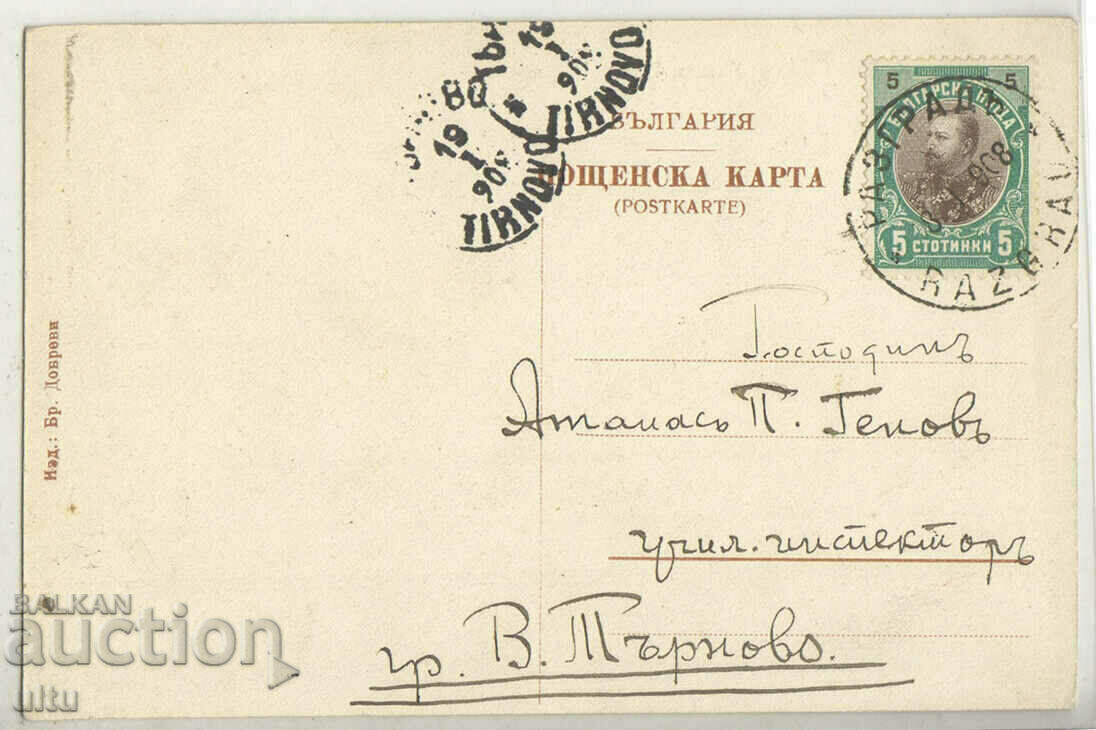 БЪЛГАРИЯ
ПОЩЕНСКА КАРТА
(POSTKARTE)
5 5
БЪЛГАРСКА ПОЩА
5 СТОТИНКИ 5
РАЗГРАДЪ
908
RAZGRAD
19
I
908
TIRNOVO
19
I
908
TIRNOVO
Господинъ
Атанасъ П. Геновъ
учил. инспекторъ
гр. В. Търново.
Изд.: Бр. Доброви
BALKAN
auction
ultu